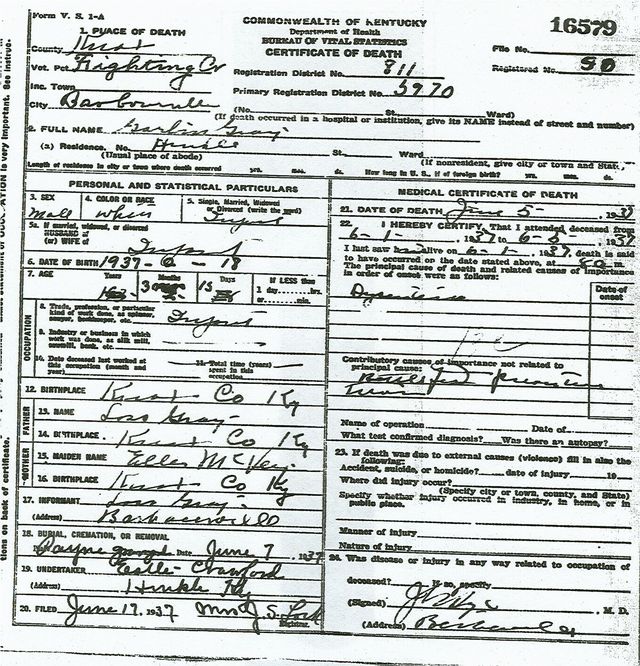 Form V. S. 1-A
COMMONWEALTH OF KENTUCKY
Department of Health
BUREAU OF VITAL STATISTICS
CERTIFICATE OF DEATH
16579
File No.
Registered No. 50
1. PLACE OF DEATH
County Knox
Vot. Pct. Fighting Cr
Inc. Town
City Barbourville
Registration District No. 811
Primary Registration District No. 5970
(No. St. Ward)
(If death occurred in a hospital or institution, give its NAME instead of street and number)
2. FULL NAME Gray
(a) Residence. No. Hinkle St. Ward
(Usual place of abode)
(If nonresident, give city or town and State)
Length of residence in city or town where death occurred yrs. mos. ds. How long in U. S., if of foreign birth? yrs. mos. ds.
PERSONAL AND STATISTICAL PARTICULARS
3. SEX
4. COLOR OR RACE
5. Single, Married, Widowed or Divorced (write the word)
Male White Infant
5a. If married, widowed, or divorced
HUSBAND of
(or) WIFE of
Infant
6. DATE OF BIRTH 1937-6-18
7. AGE Years Months Days If LESS than
1 day hrs.
or min.
3 15
OCCUPATION
8. Trade, profession, or particular kind of work done, as spinner, sawyer, bookkeeper, etc. Infant
9. Industry or business in which work was done, as silk mill, sawmill, bank, etc.
10. Date deceased last worked at this occupation (month and year)
11. Total time (years) spent in this occupation
12. BIRTHPLACE Knox Co Ky
FATHER
13. NAME Loss Gray
14. BIRTHPLACE Knox Co Ky
MOTHER
15. MAIDEN NAME
16. BIRTHPLACE Knox Co Ky
17. INFORMANT Loss Gray
(Address) Barbourville
18. BURIAL, CREMATION, OR REMOVAL
Payne Date June 7, 1937
19. UNDERTAKER Crawford
(Address) Hinkle Ky
20. FILED June 17, 1937 Mrs J. S. Lock
Registrar.
MEDICAL CERTIFICATE OF DEATH
21. DATE OF DEATH June 5, 1937
22. I HEREBY CERTIFY, That I attended deceased from
6-1-, 1937 to 6-5, 1937
I last saw alive on 6-1-, 1937, death is said
to have occurred on the date stated above, at
The principal cause of death and related causes of importance in order of onset were as follows:
Date of onset
Contributory causes of importance not related to principal cause:
Name of operation Date of
What test confirmed diagnosis? Was there an autopsy?
23. If death was due to external causes (violence) fill in also the following:
Accident, suicide, or homicide? date of injury 19
Where did injury occur?
(Specify city or town, county, and State)
Specify whether injury occurred in industry, in home, or in public place.
Manner of injury
Nature of injury
24. Was disease or injury in any way related to occupation of
deceased? If so, specify
(Signed) M. D.
(Address) Barbourville